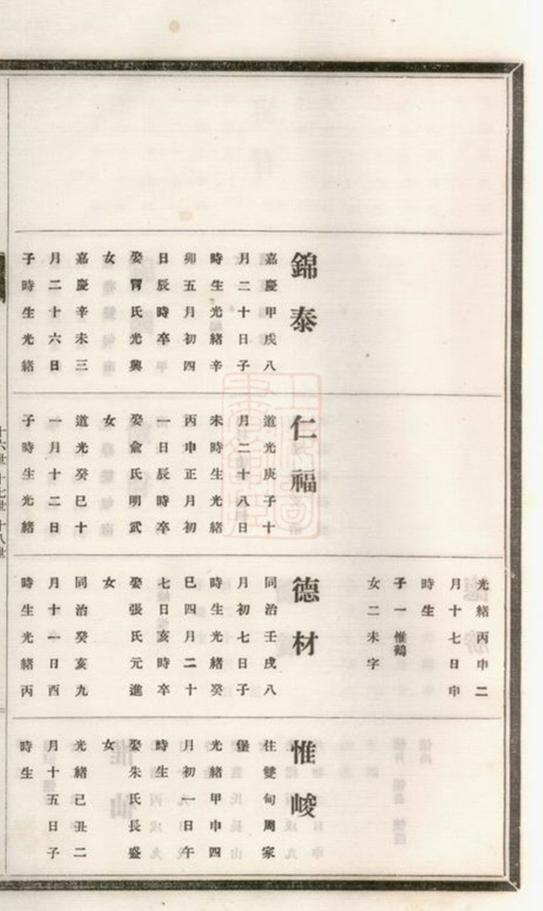 錦泰
嘉慶甲戌八
月二十日子
時生光緒辛
卯五月初四
日辰時卒
娶胥氏光興
女
嘉慶辛未三
月二十六日
子時生光緒
仁福
道光庚子十
月二十八日
未時生光緒
丙申正月初
一日辰時卒
娶俞氏明武
女
道光癸巳十
一月十二日
子時生光緒
光緒丙申二
月十七日申
時生
子一惟鶴
女二未字
德材
同治壬戌八
月初七日子
時生光緒癸
巳四月二十
七日亥時卒
娶張氏元進
女
同治癸亥九
月十一日酉
時生光緒丙
惟峻
住雙甸周家
堡
光緒甲申四
月初一日午
時生
娶朱氏長盛
女
光緒己丑二
月十五日子
時生
十六世 十七世 十八世